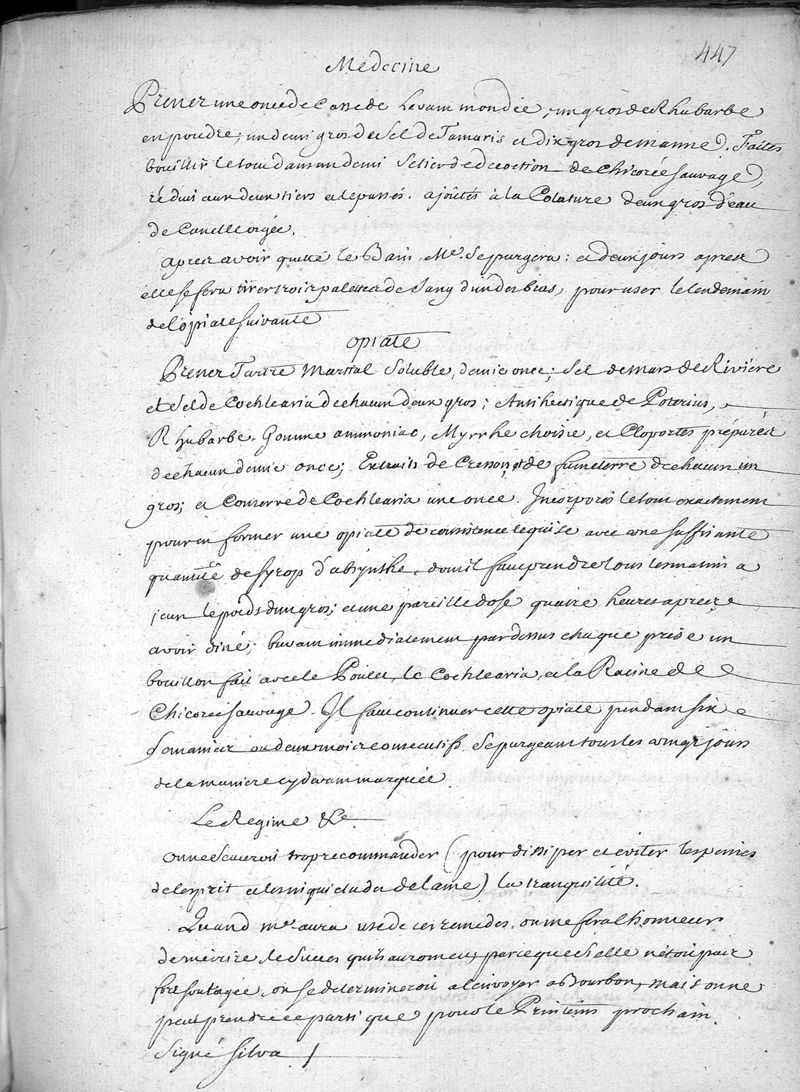 447
Medecine
Prenez une once de Casse de Levant mondée, un gros de Rhubarbe
en poudre, un demi gros de Sel de Tamaris et dix gros de manne. Faites
bouillir le tout dans un demi Setier de decoction de Chicorée sauvage,
réduit aux deux tiers et le passés. ajoûtés à la Colature deux gros d'eau
de Canelle orgée.
apres avoir quitté le Bain, Me. Se purgera: et deux jours apres
elle se fera tirer trois palettes de Sang d'un des bras, pour user le lendemain
de l'opiate suivante
opiate
Prenez Tartre Martial Soluble, demie once; Sel de mars de Riviere
et Sel de Cochlearia de chacun deux gros; Antihectique de Poterius,
Rhubarbe, Gomme ammoniac, Myrrhe choisie, et Cloportes préparés
de chacun demie once; Extraits de Cresson et de fumeterre de chacun un
gros; et Conserve de Cochlearia une once. Incorporés le tout exactement
pour en former une opiate de consistence requise avec une suffisante
quantité de Syrop d'absynthe, dont il faut prendre tous les matins a
jeun le poids d'un gros; et une pareille dose quatre heures apres
avoir diné; buvant immediatement par dessus chaque prise un
bouillon fait avec le Poulet, le Cochlearia, et la Racine de
Chicorée sauvage. Il faut continuer cette opiate pendant six
Semaines ou deux mois consecutifs, Se purgeant tous les vingt jours
de la maniere cy devant marquée.
Le Regime &c
on ne Scauroit trop recommander (pour dissiper et eviter les peines
de l'esprit et les inquietudes de l'ame) la tranquilité.
Quand Me aura usé de ces remedes, on me fera l'honneur
de m'ecrire le Succes qu'ils auront eu, parceque si elle n'étoit pas
fort soulagée, on se determineroit a l'envoyer a Bourbon, mais on ne
peut prendre ce parti que pour le Printems prochain.
Signé Silva /